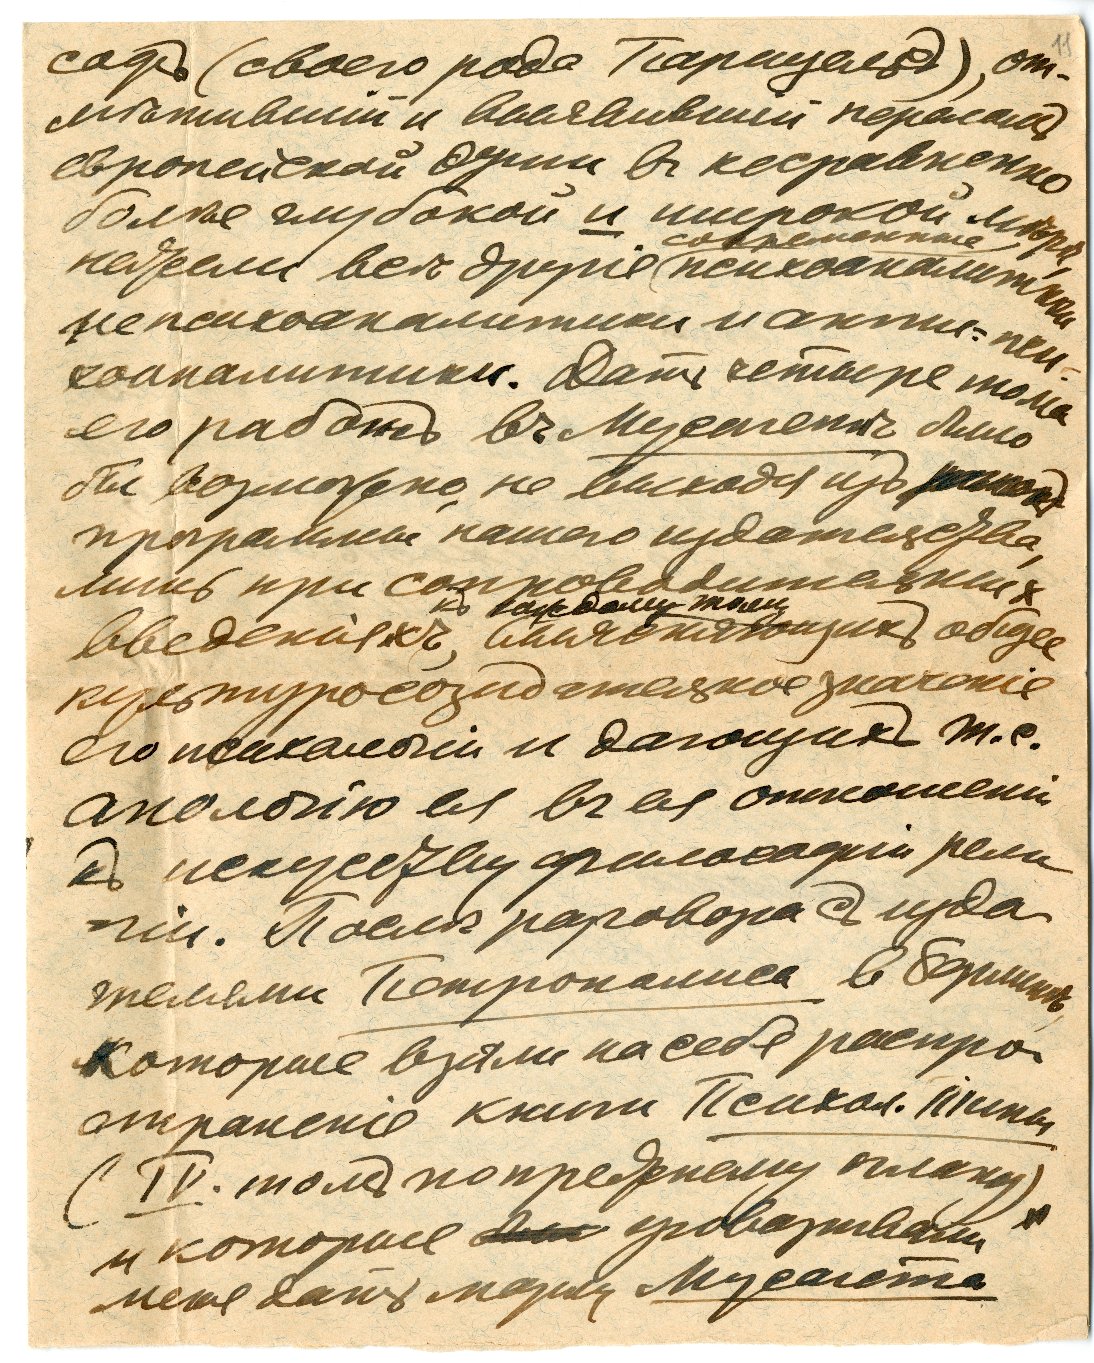 11
софъ (своего рода Парацельсъ), от-
мѣтившій и выявившій переломъ
европейской души въ несравненно
болѣе глубокой и широкой мѣрѣ,
нежели всѣ другіе (современные психоаналитики
непсихоаналитики и анти-пси-
хоаналитики. Дать четыре тома
его работъ въ Мусагетѣ было
бы возможно, не выходя изъ
программы нашего издательства,
лишь при сопроводительныхъ
введеніяхъ къ каждому тому, выясняющихъ общее
культуросозидательное значеніе
его психологіи и дающихъ т.с.
апологію ея въ ея отношеніи
къ искусству философіи рели
гіи. Послѣ разговора съ изда-
телями Петрополиса въ Берлинѣ,
которые взяли на себя распро-
страненіе книги Психол. Типы
(IV. томъ по прежнему плану)
и которые уговаривали
меня дать марку Мусагета